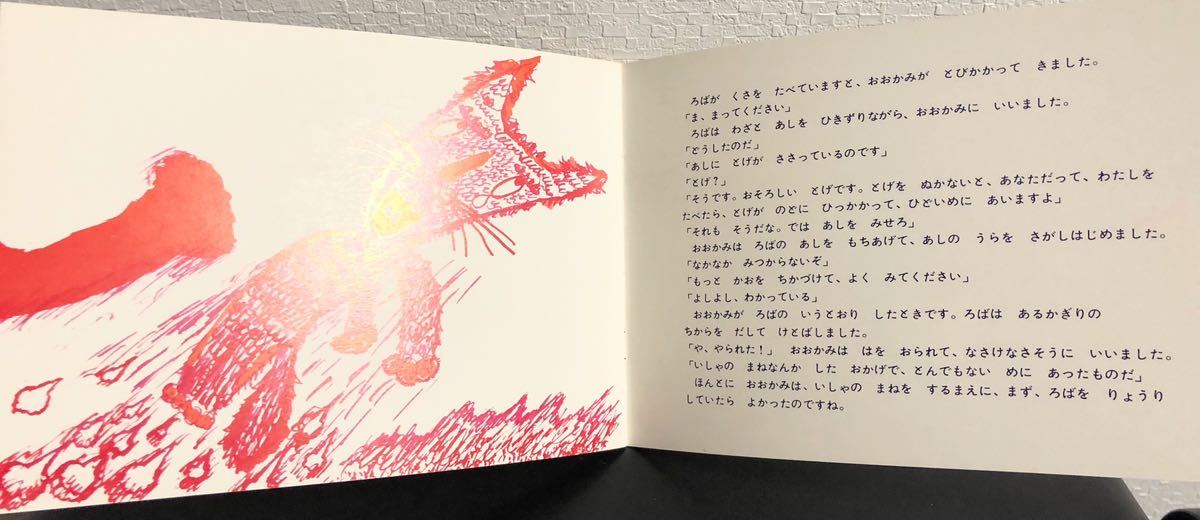 ろばが　くさを　たべていますと、おおかみが　とびかかって　きました。
「ま、まってください」
ろばは　わざと　あしを　ひきずりながら、おおかみに　いいました。
「どうしたのだ」
「あしに　とげが　ささっているのです」
「とげ？」
「そうです。おそろしい　とげです。とげを　ぬかないと、あなただって、わたしを
たべたら、とげが　のどに　ひっかかって、ひどいめに　あいますよ」
「それも　そうだな。では　あしを　みせろ」
おおかみは　ろばの　あしを　もちあげて、あしの　うらを　さがしはじめました。
「なかなか　みつからないぞ」
「もっと　かおを　ちかづけて、よく　みてください」
「よしよし、わかっている」
おおかみが　ろばの　いうとおり　したときです。ろばは　あるかぎりの
ちからを　だして　けとばしました。
「や、やられた！」　おおかみは　はを　おられて、なさけなさそうに　いいました。
「いしゃの　まねなんか　した　おかげで、とんでもない　めに　あったものだ」
ほんとに　おおかみは、いしゃの　まねを　するまえに、まず、ろばを　りょうり
していたら　よかったのですね。